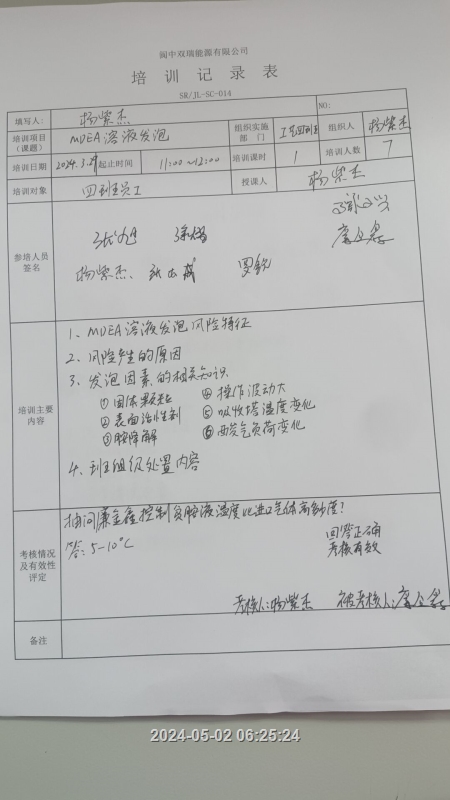 阆中双瑞能源有限公司
培训记录表
SR/JL-SC-014
填写人: 杨紫杰 NO:
培训项目(课题) MDEA溶液发泡 组织实施部门 工艺四班 组织人 杨紫杰
培训日期 2024.3.29 起止时间 11:00~12:00 培训课时 1 培训人数 7
培训对象 四班员工 授课人 杨紫杰
参培人员签名
张旭
杨紫杰、
培训主要内容
1、MDEA溶液发泡风险特征
2、风险产生的原因
3、发泡因素的相关知识
①固体颗粒 ④操作波动大
②表面活性剂 ⑤吸收塔温度变化
③胺降解 ⑥酸气负荷变化
4、班组级处置内容
考核情况及有效性评定
抽问廉金鑫控制贫胺液温度比进口气体高多少度?
答:5-10℃ 回答正确
考核有效
考核人:杨紫杰 被考核人:
备注
2024-05-02 06:25:24